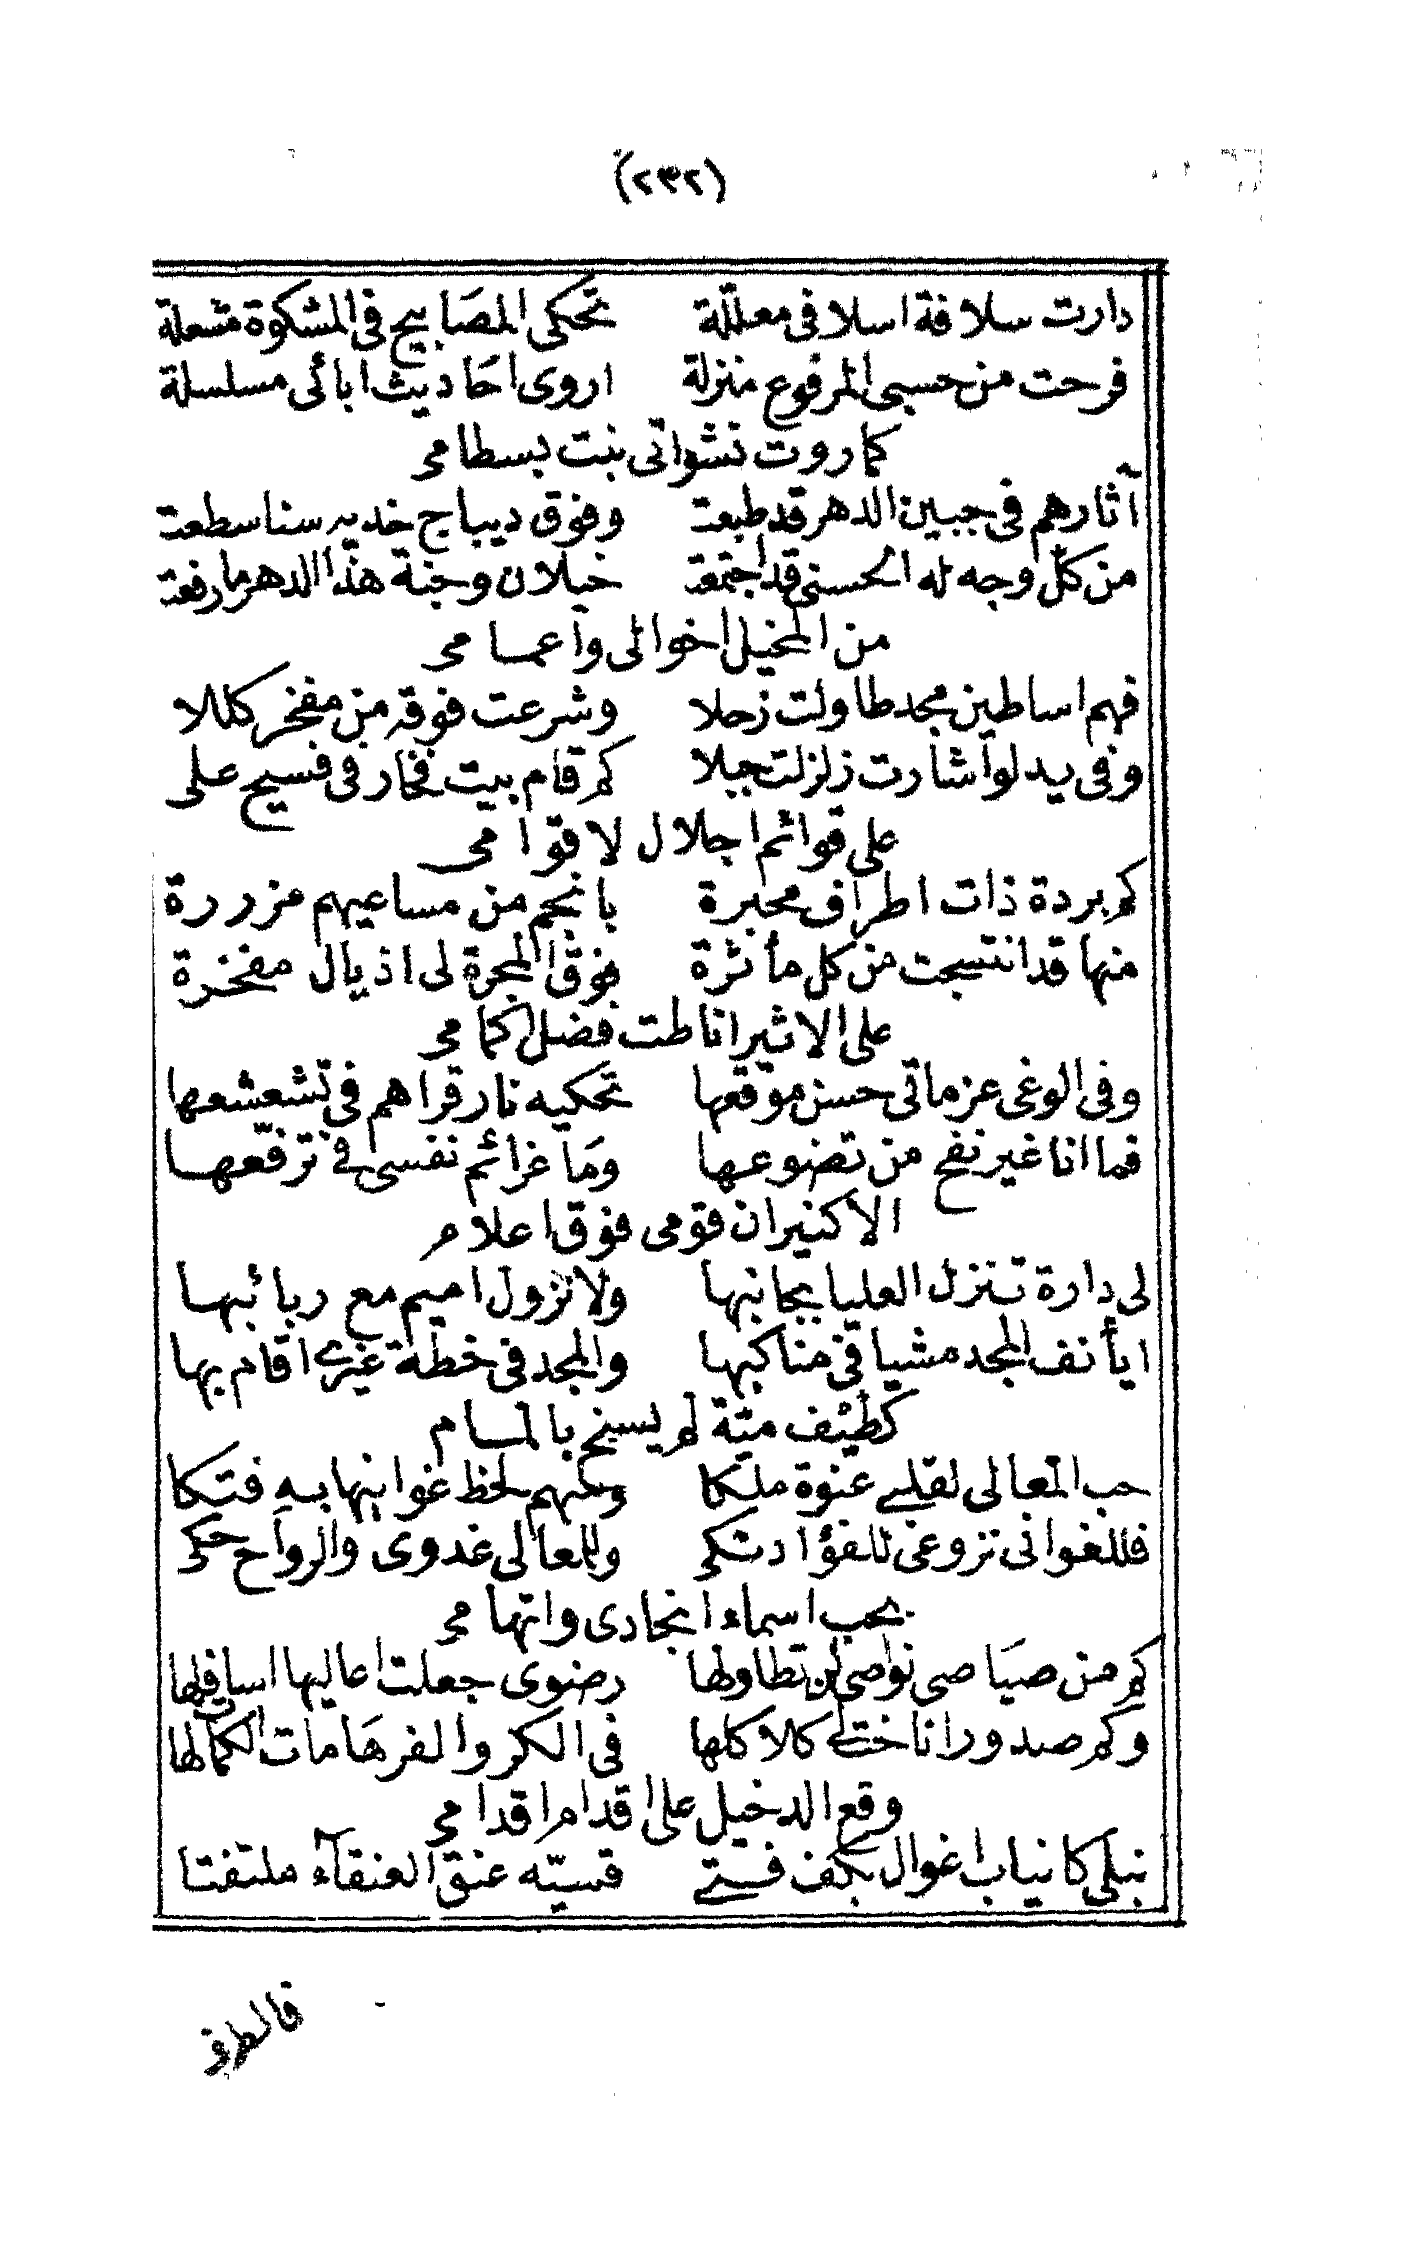 (٢٣٢)
دارت سلافة اسلافى معللة تحكى المصَابيح فى المشكوة مشعلة
فرحت من حسبى المرفوع منزلة اروى احَاديث ابائى مسلسلة
كماروت نشواتى بنت بسطامى
آثارهم فى جبين الدهر قد طبعت وفوق ديباج خديه سنا سطعت
من كل وجه له الحسنى قد اجتمعت خيلان وجنة هذا الدهر ما رفعت
من المخيل اخوالى واعمامى
فهم اساطين مجد طاولت زحلا وشرعت فوقه من مفخر كللا
وفى يد لو اشارت زلزلت جبلا كم قام بيت فخار فى فسيح على
على قوائم اجلال لاقوامى
كم بردة ذات اطراف محبرة بانجم من مساعيهم مزررة
منها قد انتسجت من كل مأثرة فوق المجرة لى اذيال مفخرة
على الاثير اناطت فضل اكمامى
وفى الوغى عزماتى حسن موقعها تحكيه نار قراهم فى تشعشعها
فما انا غير نفح من تضوعها وما عزائم نفسى فى ترفّعها
الاكنيران قومى فوق اعلام
لى دارة تنزل العليا بجانبها ولا نزول اميم مع ربائبها
ايأنف المجد مشيا فى مناكبها والمجد فى خطة غيرى اقام بها
كطيف ميّة لم يسنح بالمام
حب المعالى لقلبى عنوة ملكا وكنهم لحظ غوانيها به فتكا
فللغوانى نزوعى للفؤاد شكى وللمعالى غدوى والرواح حكى
بحب اسماء انجادى واتهامى
كم من صيَاصى نواصى لن تطاولها رضوى جعلت اعاليها اسافلها
وكم صدور اناختلى كلاكلها فى الكر والفر هَامات الكمالها
وقع الدخيل على اقدام اقدامى
نبلى كانياب اغوال بكف فتى قسيّه عنق العنقآء ملتفتا
فالطرف